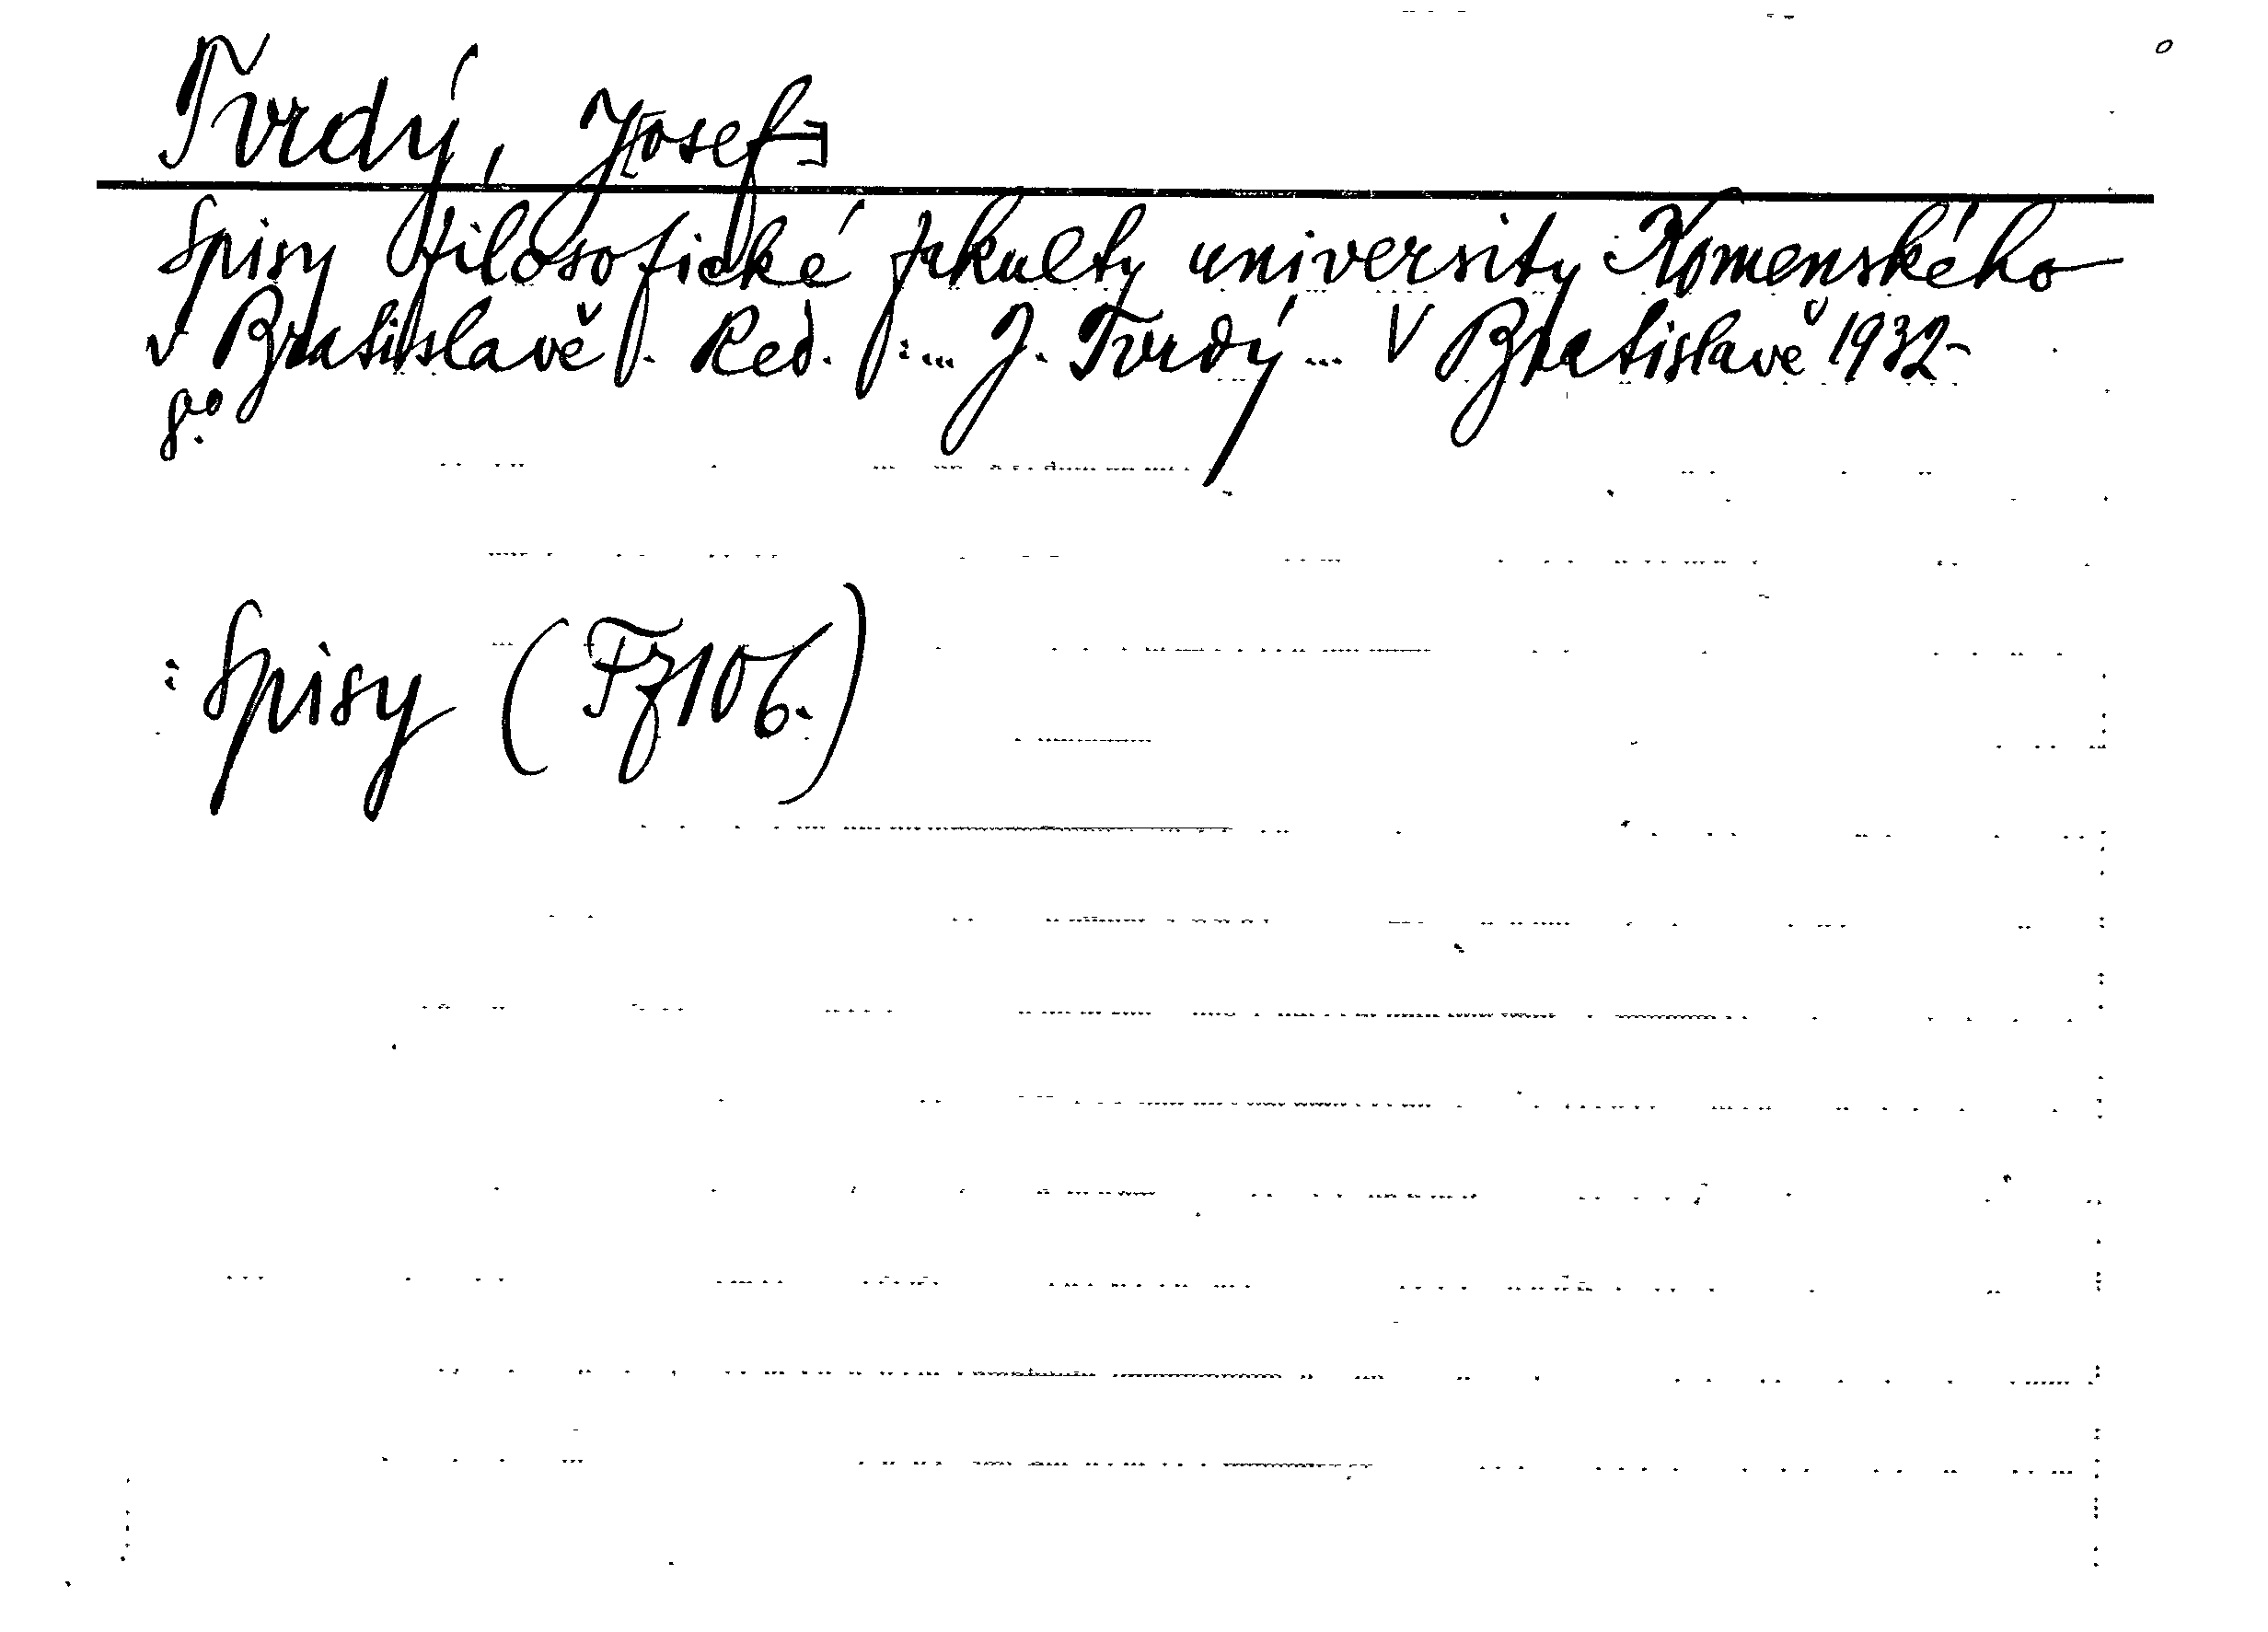 Tvrdý, J[osef]
Spisy filosofické fakulty university Komenského
v Bratislavě. Red.: ... J. Tvrdý ... V Bratislavě 1932-
8.°
: Spisy (Fz106.)